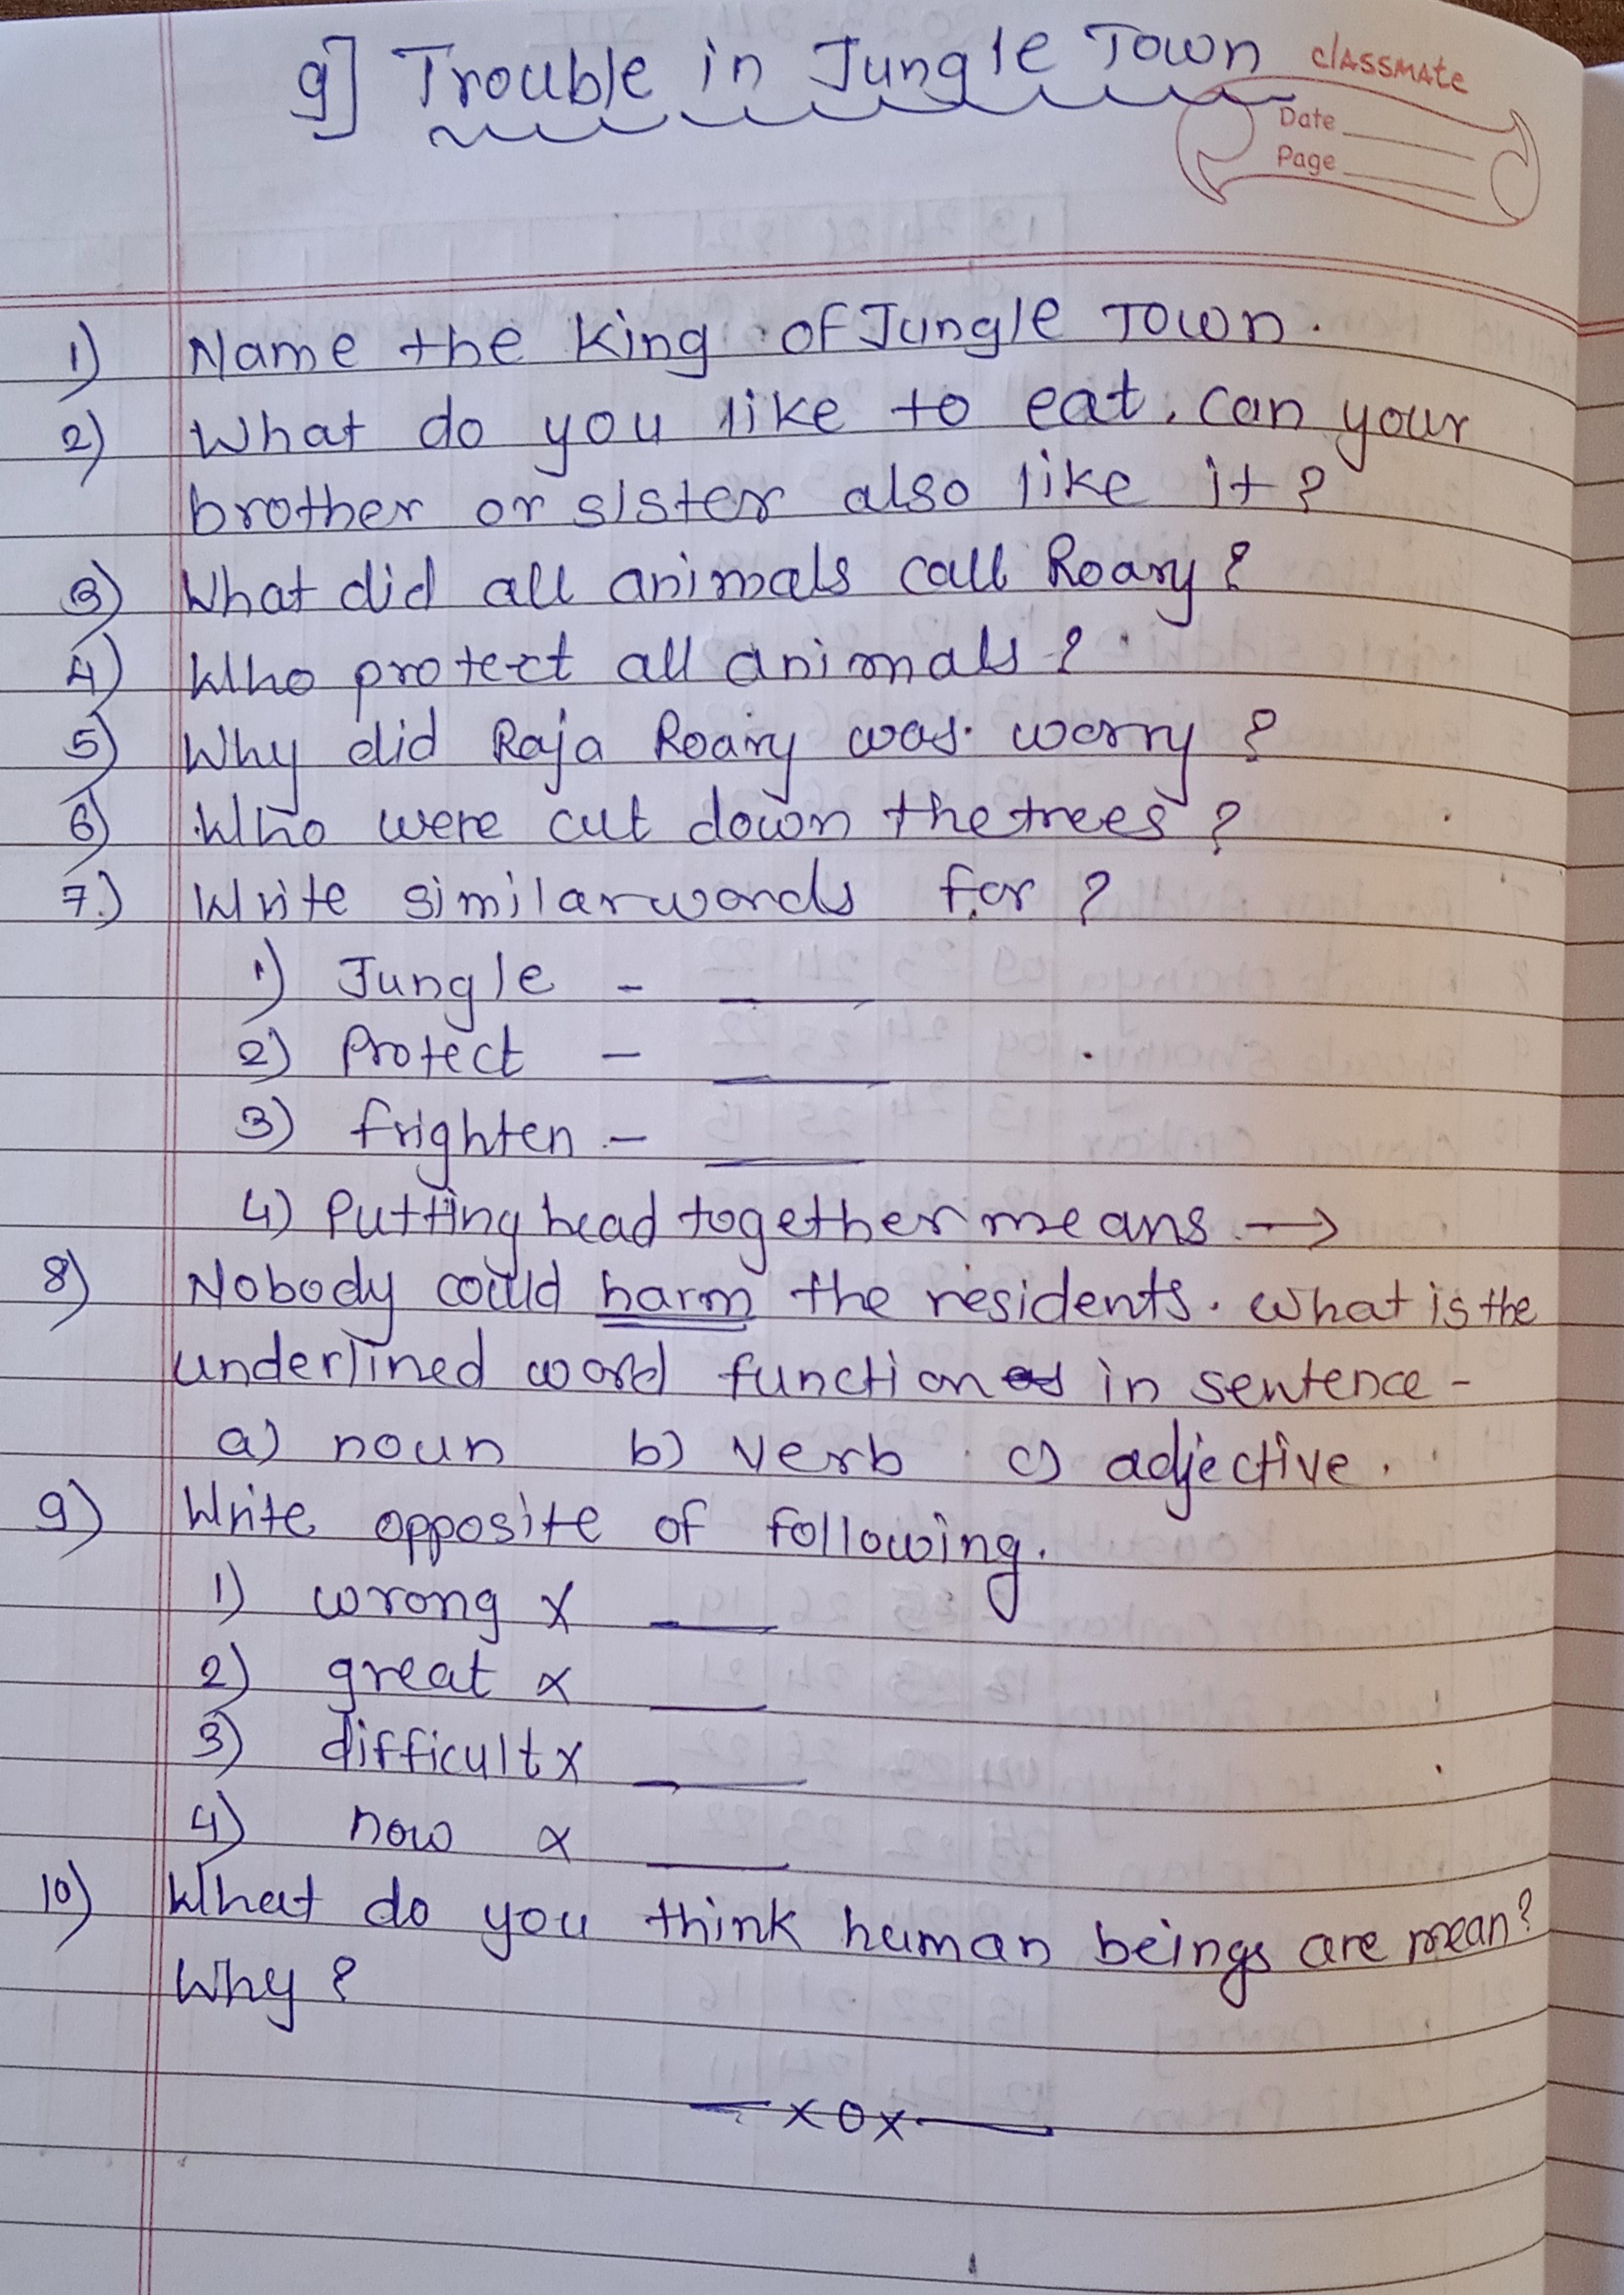 9] Trouble in Jungle Town
classmate
Date
Page
1) Name the King of Jungle Town.
2) What do you like to eat. Can your
brother or sister also like it?
3) What did all animals call Roary?
4) Who protect all animals?
5) Why did Raja Roary was worry?
6) Who were cut down the trees?
7.) Write similar words for?
1) Jungle -
2) Protect -
3) frighten -
4) Putting head together means →
8) Nobody could harm the residents. What is the
underlined word function in sentence -
a) noun b) verb c) adjective.
9) Write opposite of following.
1) wrong x
2) great x
3) difficult x
4) now x
10) What do you think human beings are mean?
Why?
— x o x —